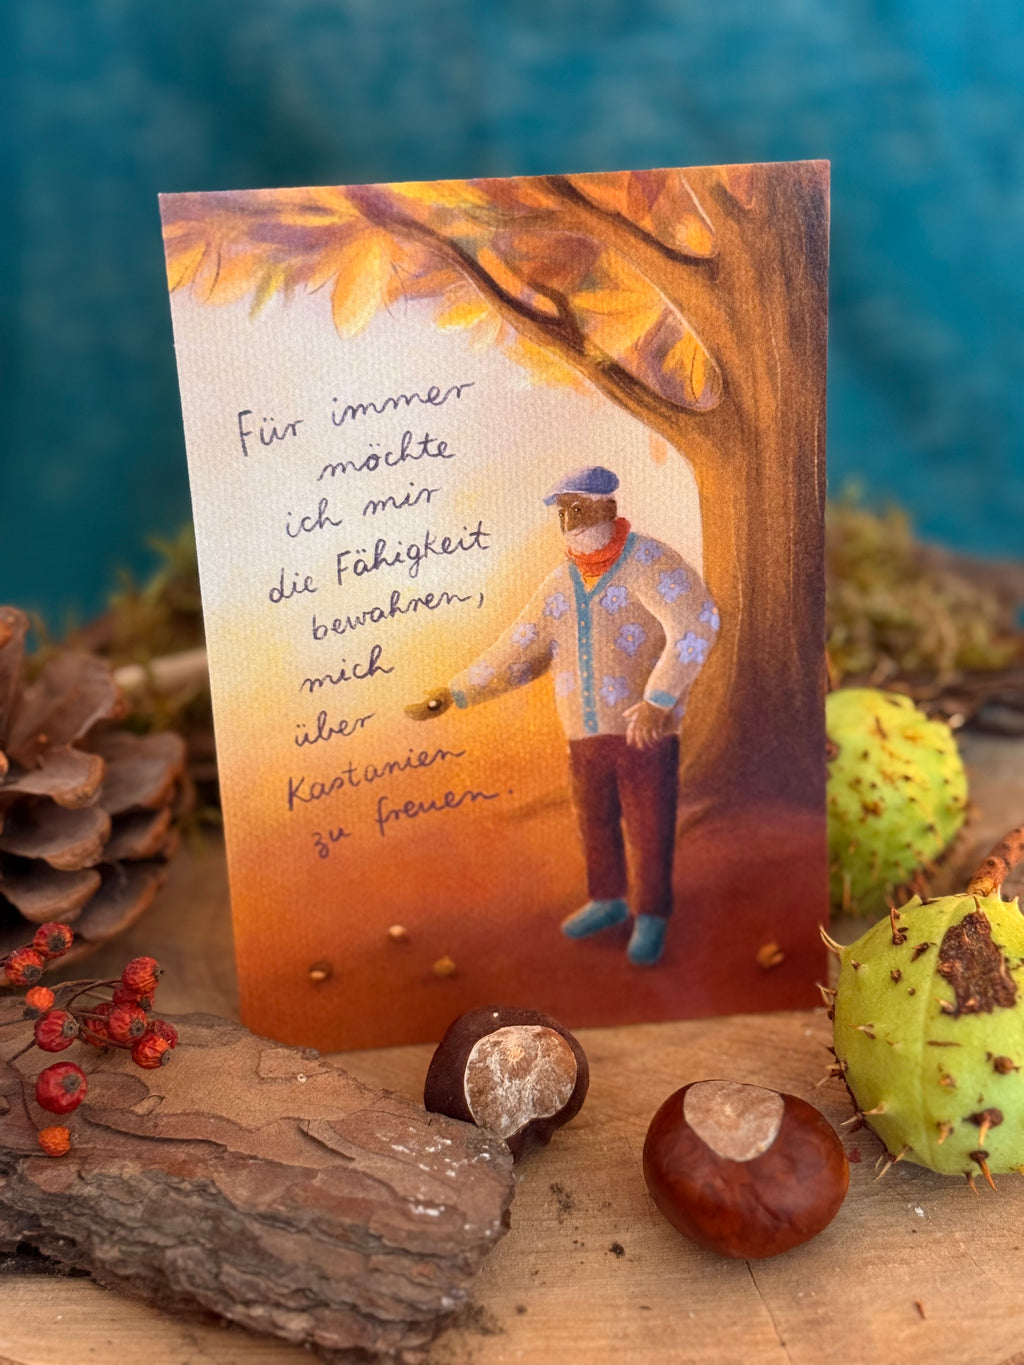 Für immer
möchte
ich mir
die Fähigkeit
bewahren,
mich
über
Kastanien
zu freuen.